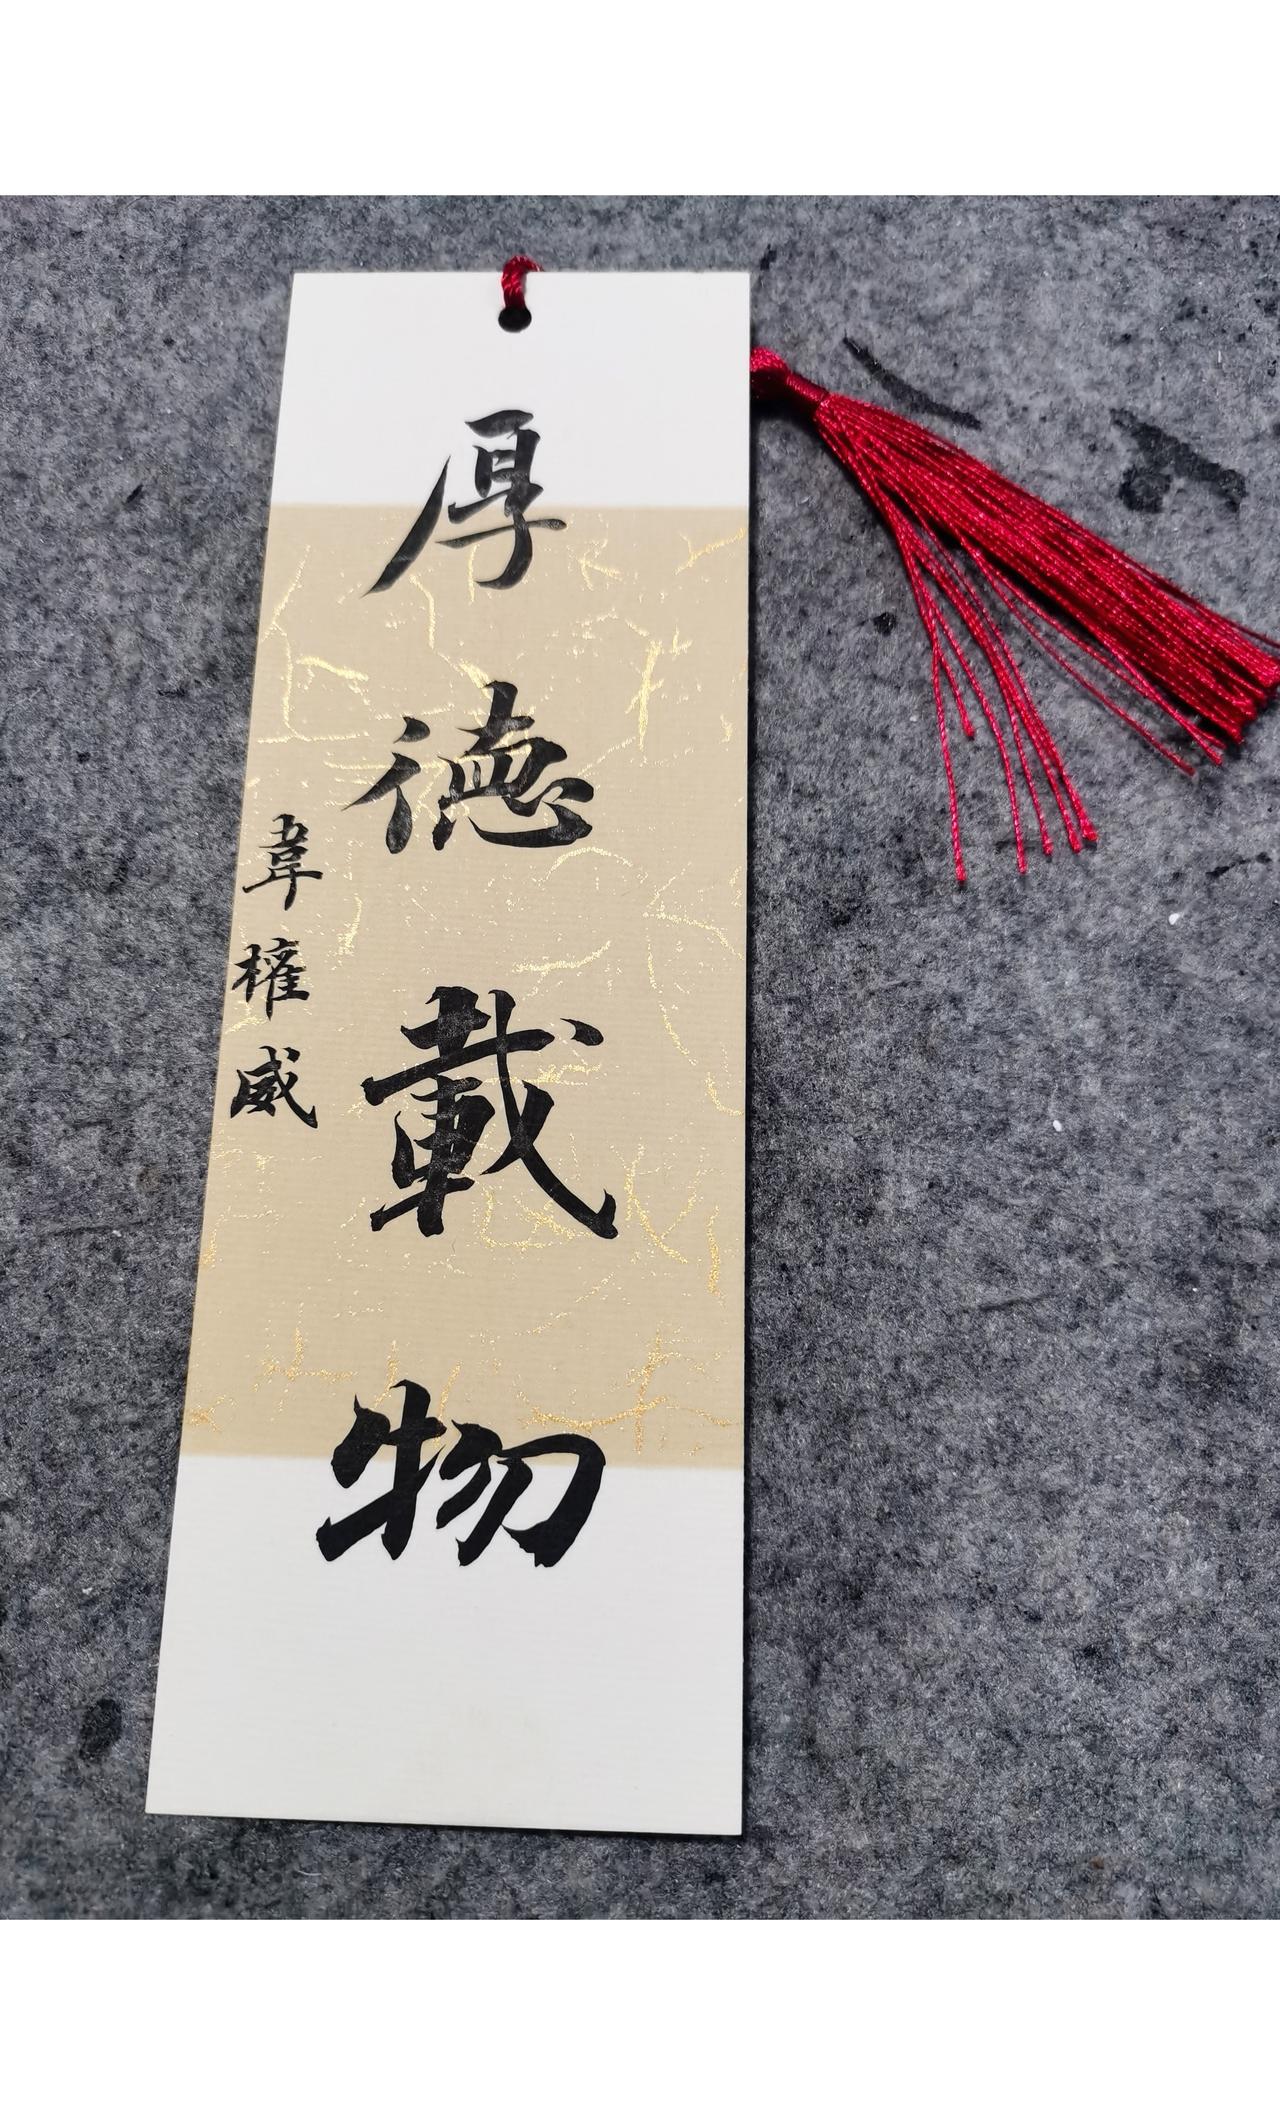 厚德載物
韋權威